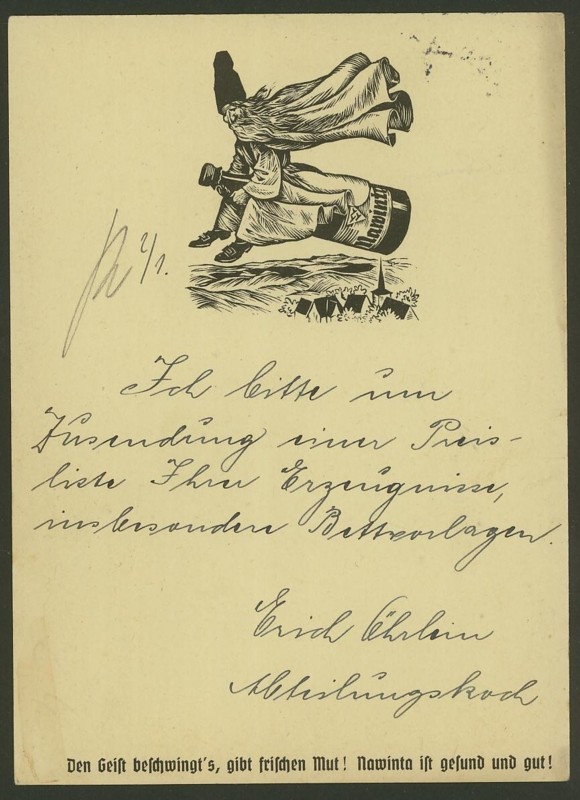 Nawinta
2/1.
Ich bitte um
Zusendung einer Preis-
liste Ihrer Erzeugnisse,
insbesondere Bettvorlagen.
Erich Öhrlein
Abteilungskoch
Den Geist beschwingt's, gibt frischen Mut! Nawinta ist gesund und gut!